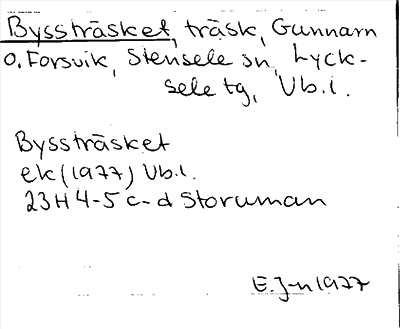 Byssträsket, träsk, Gunnarn
o. Forsvik, Stensele sn, Lyck-
sele tg, Vb.l.
Byssträsket
ek (1977) Vb.l.
23H 4-5 c-d Storuman
E.J-n 1977